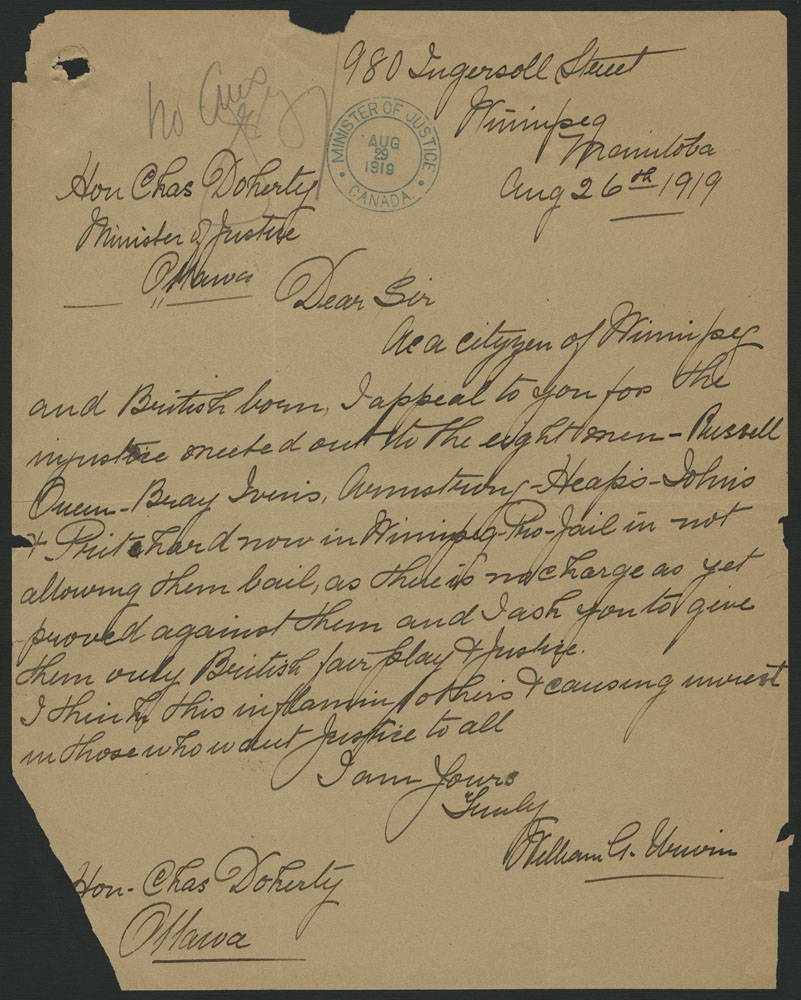 980 Ingersoll Street
Winnipeg
Manitoba
Aug 26th 1919
no Ans
MINISTER OF JUSTICE
AUG
29
1919
CANADA.
Hon Chas Doherty
Minister of Justice
Ottawa
Dear Sir
As a cityzen of Winnipeg
and British born, I appeal to you for the
injustice meeted out to the eight men - Russell
Queen - Bray Ivens, Armstrong - Heaps - Johns
+ Pritchard now in Winnipeg - Pro - Jail in not
allowing them bail, as there is no charge as yet
proved against them and I ask you to give
them only British fair play & Justice.
I think this inflamin others & causing unrest
in those who want Justice to all
I am Yours
Truly
William G. Unwin
Hon - Chas Doherty
Ottawa